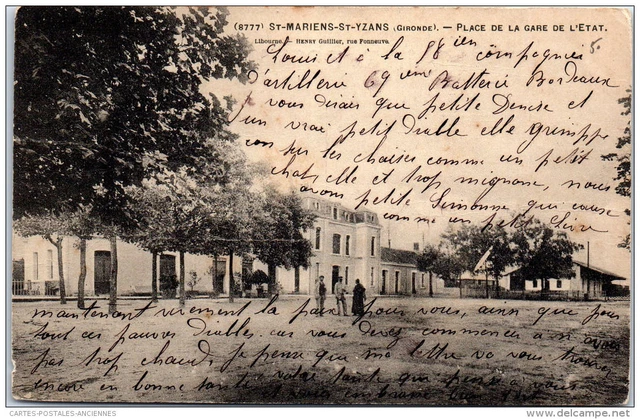 (8777) ST-MARIENS-ST-YZANS (GIRONDE). — PLACE DE LA GARE DE L'ETAT.
Libourne. — HENRY Guillier, rue Fonneuve.
Louis est à la 58 ième compagnie
d'artillerie 69 ième Batterie Bordeaux
vous dirais que petite Denise et
un vrai petit diable elle grimpe
sur les chaises comme un petit
chat elle et trop mignone, nous
avons petite Simonne que cause
comme un petit
maintenant vivement la paix pour vous, ainsi que pour
tout ces pauvres diables. car vous devez commencer a en avoir
pas trop chaud, je pense que ma lettre va vous trouver
encore en bonne santé
CARTES-POSTALES-ANCIENNES
www.delcampe.net